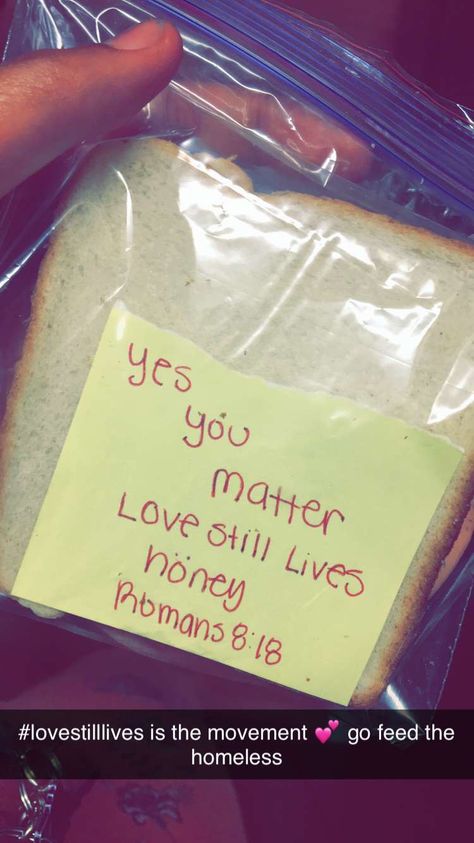 yes
you
matter
Love still Lives
honey
Romans 8:18
#lovestilllives is the movement 💕 go feed the
homeless